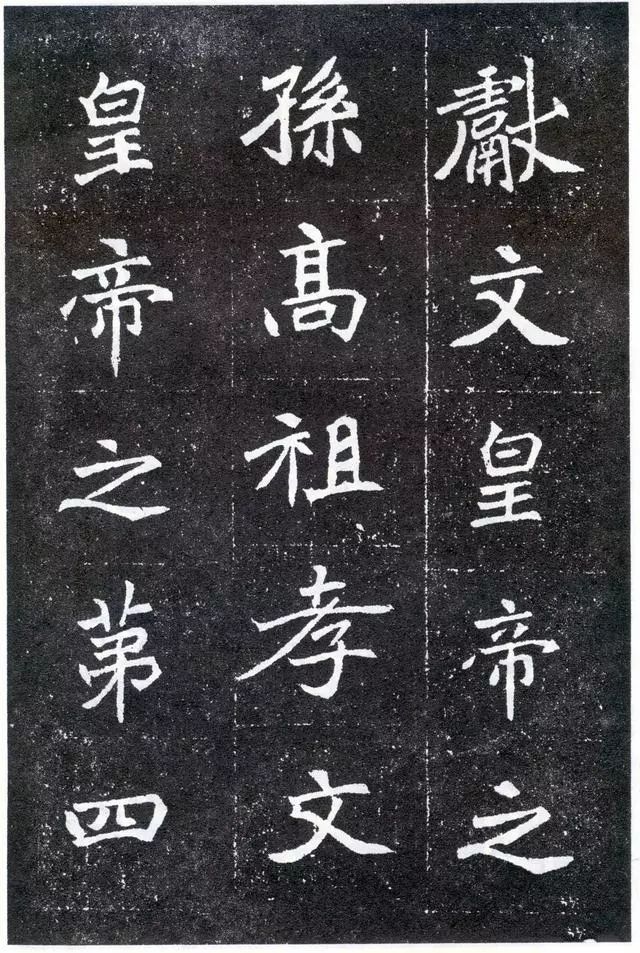 獻文皇帝之
孫髙祖孝文
皇帝之苐四